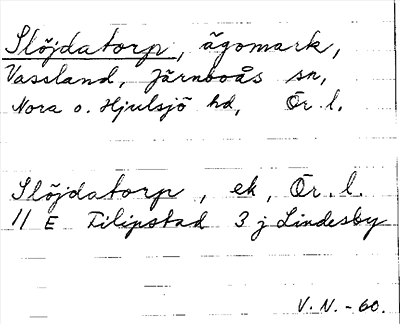 Slöjdatorp, ägomark,
Vassland, Järnboås sn,
Nora o. Hjulsjö hd, Ör. l.
Slöjdatorp, ek, Ör. l.
11 E Filipstad 3 j Lindesby
V. N. - 60.